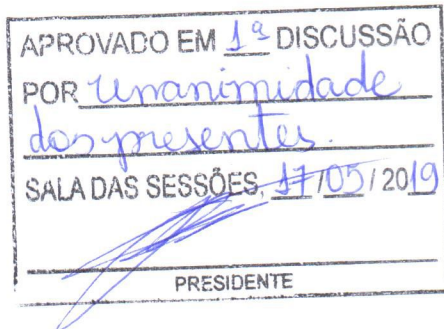 APROVADO EM 1ª DISCUSSÃO
POR Unanimidade
dos presentes.
SALA DAS SESSÕES, 17/05/2019
PRESIDENTE